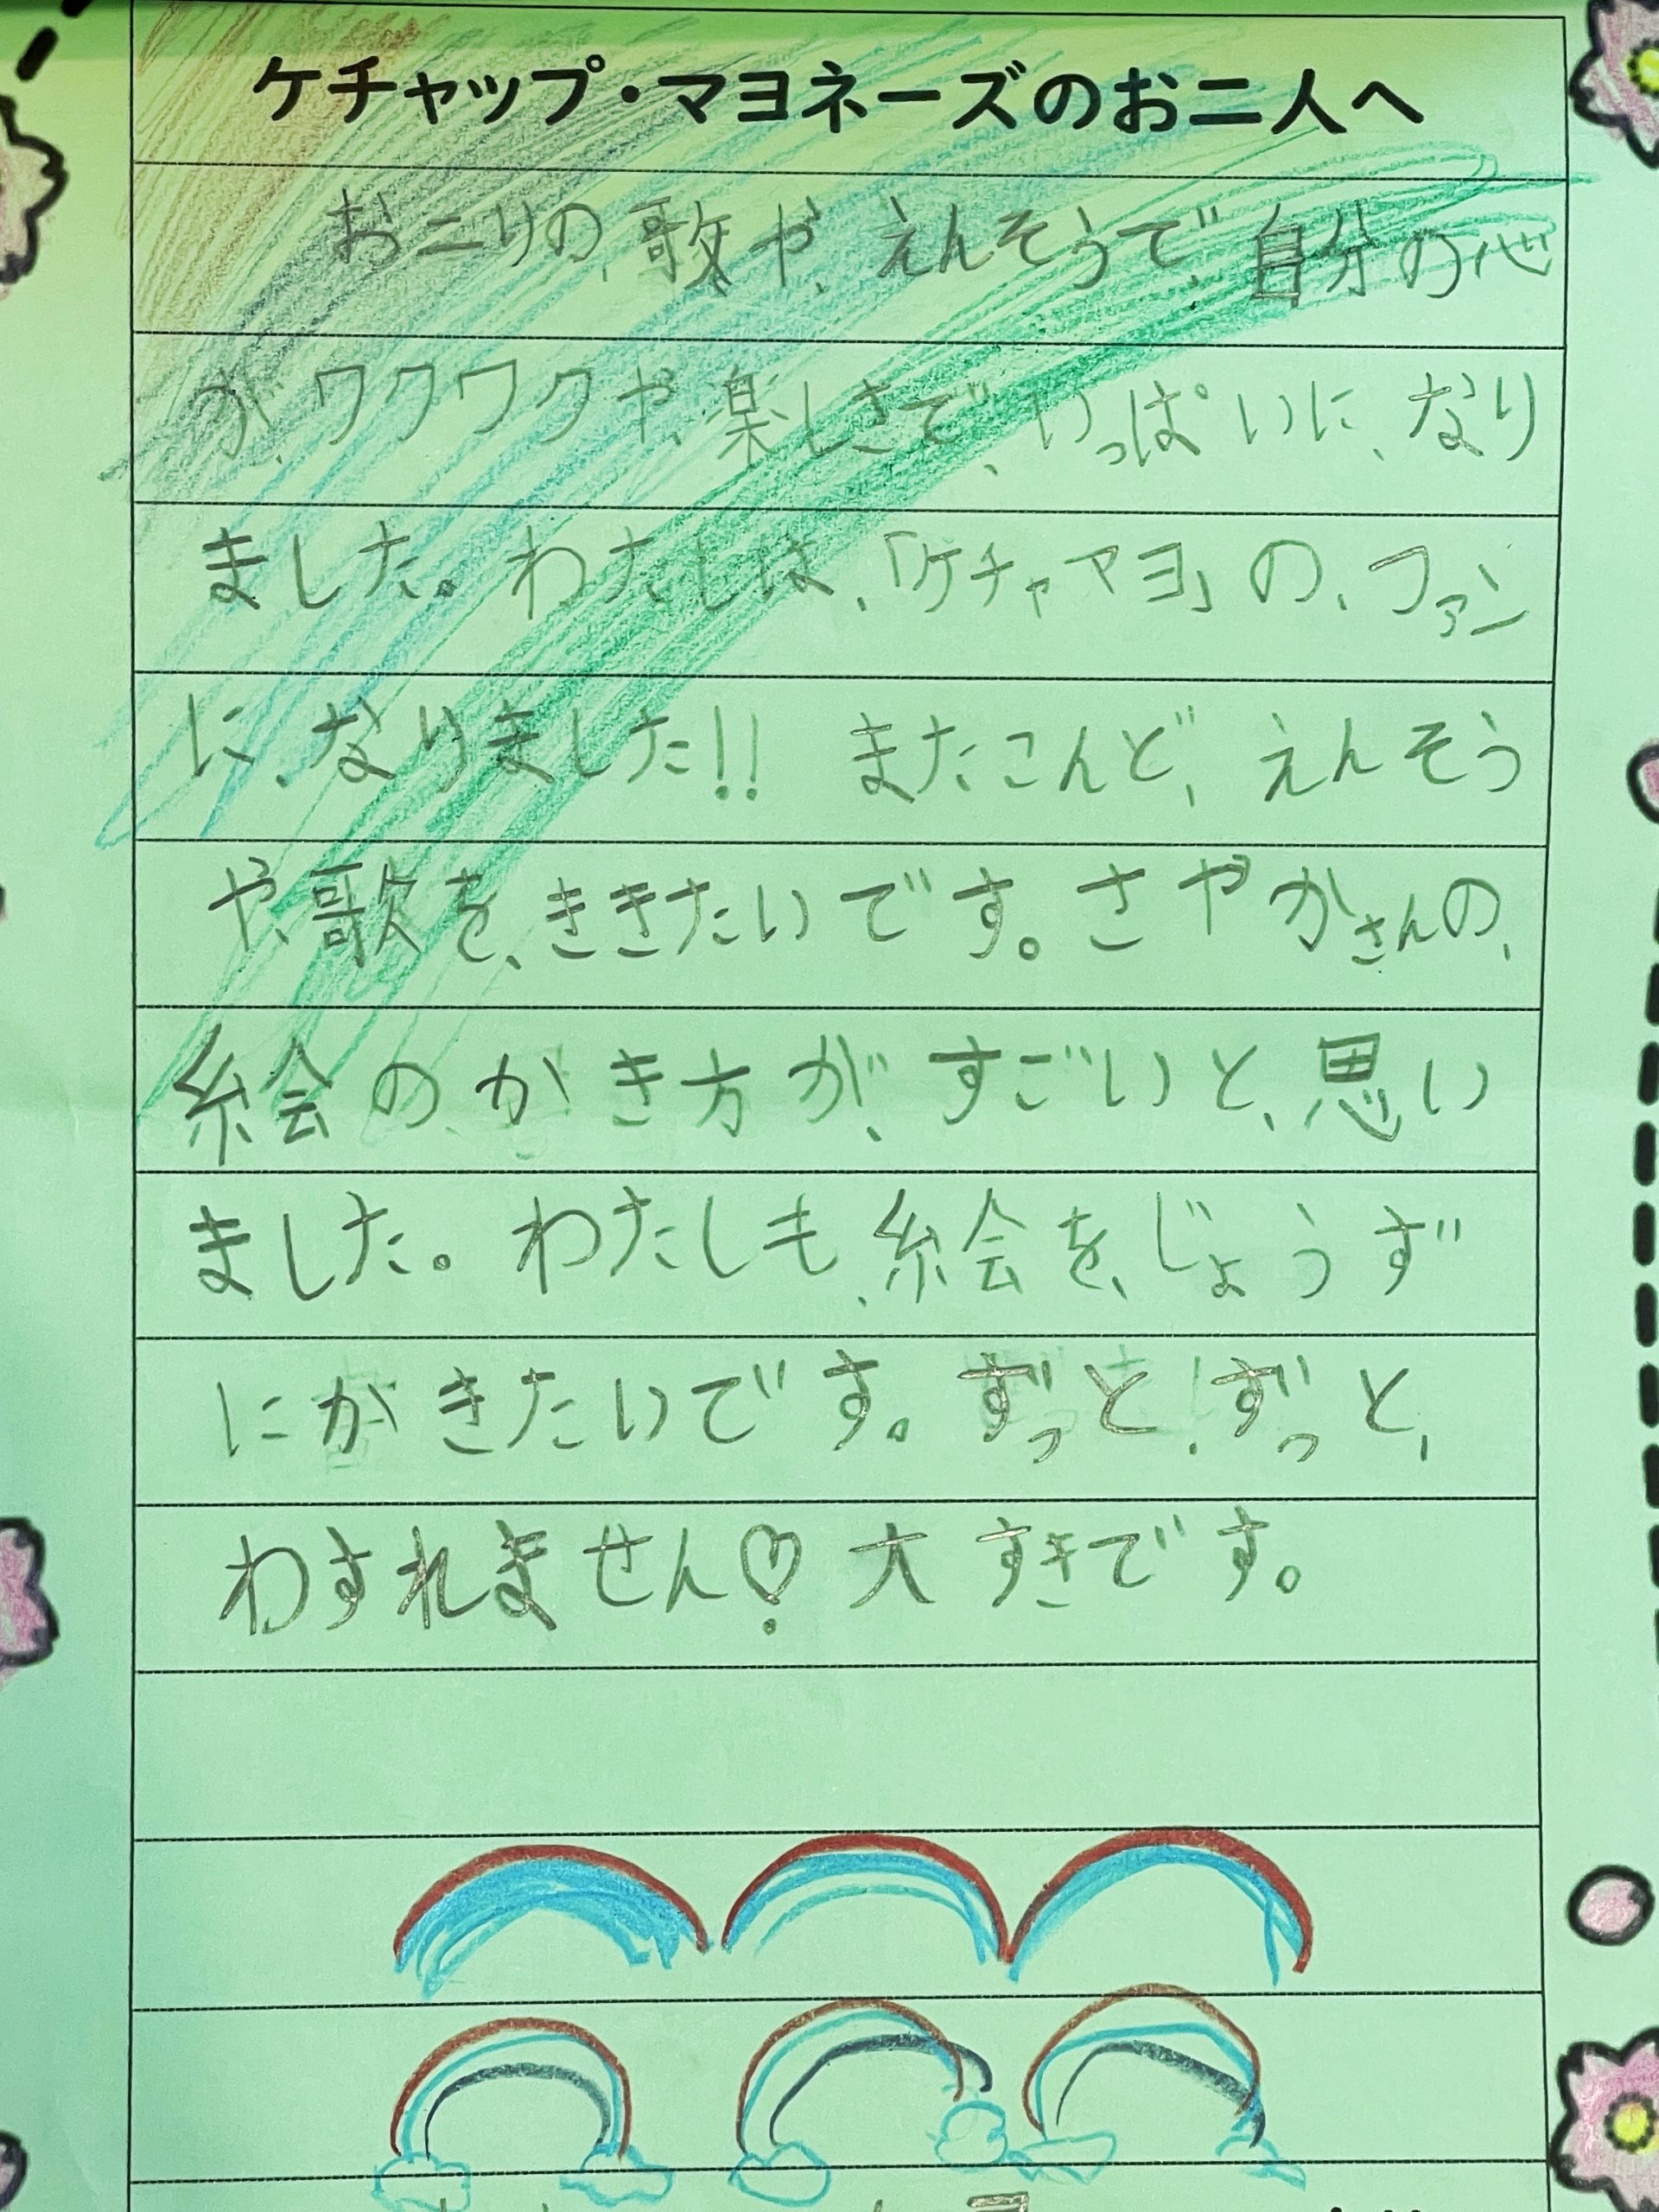 ケチャップ・マヨネーズのお二人へ
おニりの、歌や、えんそうで、自分の心
が、ワクワクや、楽しさで、いっぱいに、なり
ました。わたしは、「ケチャマヨ」の、ファン
に、なりました!! またこんど、えんそう
や、歌を、ききたいです。さやかさんの、
絵の、かき方が、すごいと、思い
ました。わたしも、絵を、じょうず
にかきたいです。ずっと、ずっと、
わすれません♡ 大すきです。